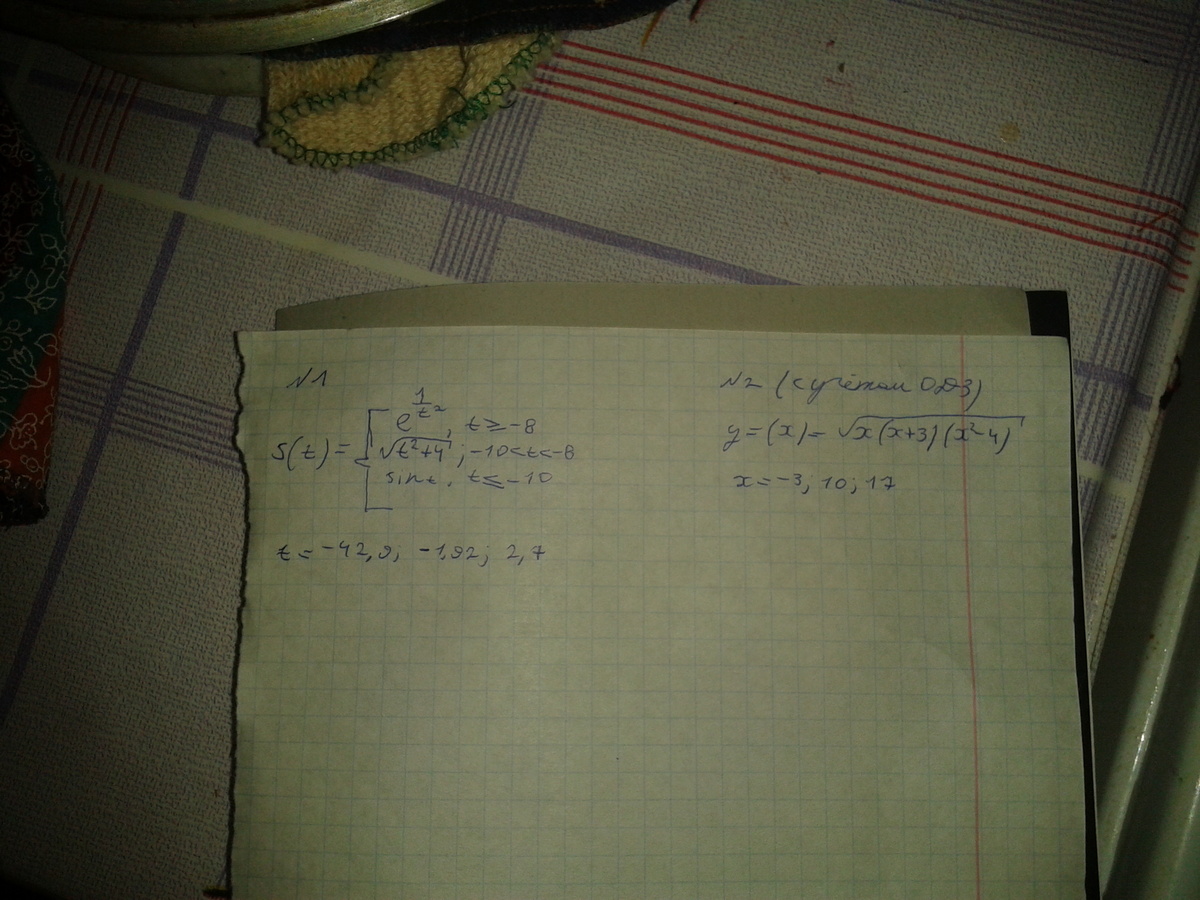 N1
S(t) = [ e^(1/t²), t ≥ -8
√(t²+4); -10<t<-8
sin t, t ≤ -10
t = -42,9; -1,92; 2,7
N2 (с учётом ОДЗ)
y=(x)= √x(x+3)(x²-4)
x = -3; 10; 17